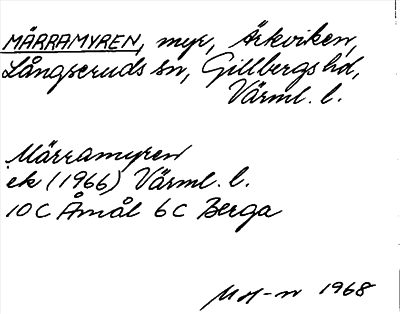 MÄRRAMYREN, myr, Ärkviken,
Långseruds sn, Gillbergs hd,
Värml. l.
Märramyren
ek (1966) Värml. l.
10 C Åmål 6 C Berga
1968